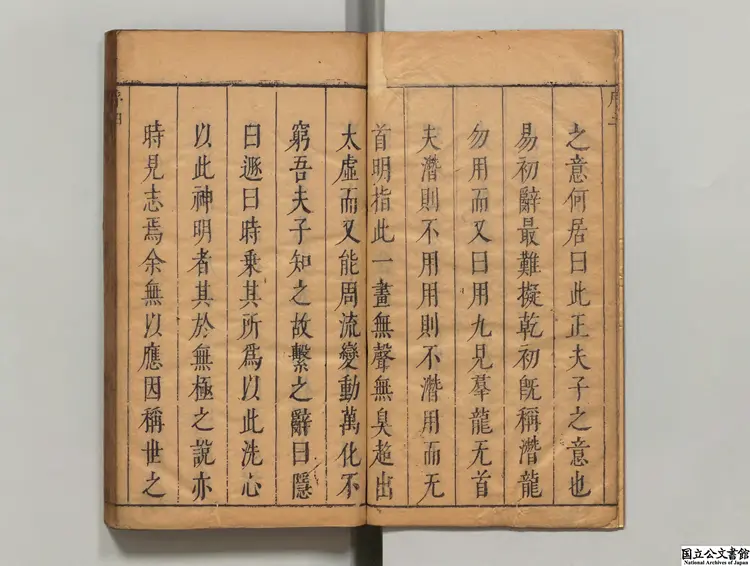 之意何居曰此正夫子之意也
易初辭最難擬乾初旣稱潛龍
勿用而又曰用九見羣龍无首
夫潛則不用用則不潛用而无
首明指此一畫無聲無臭超出
太虛而又能周流變動萬化不
窮吾夫子知之故繫之辭曰隱
曰遯曰時乘其所爲以此洗心
以此神明者其於無極之說亦
時見志焉余無以應因稱世之
国立公文書館
National Archives of Japan